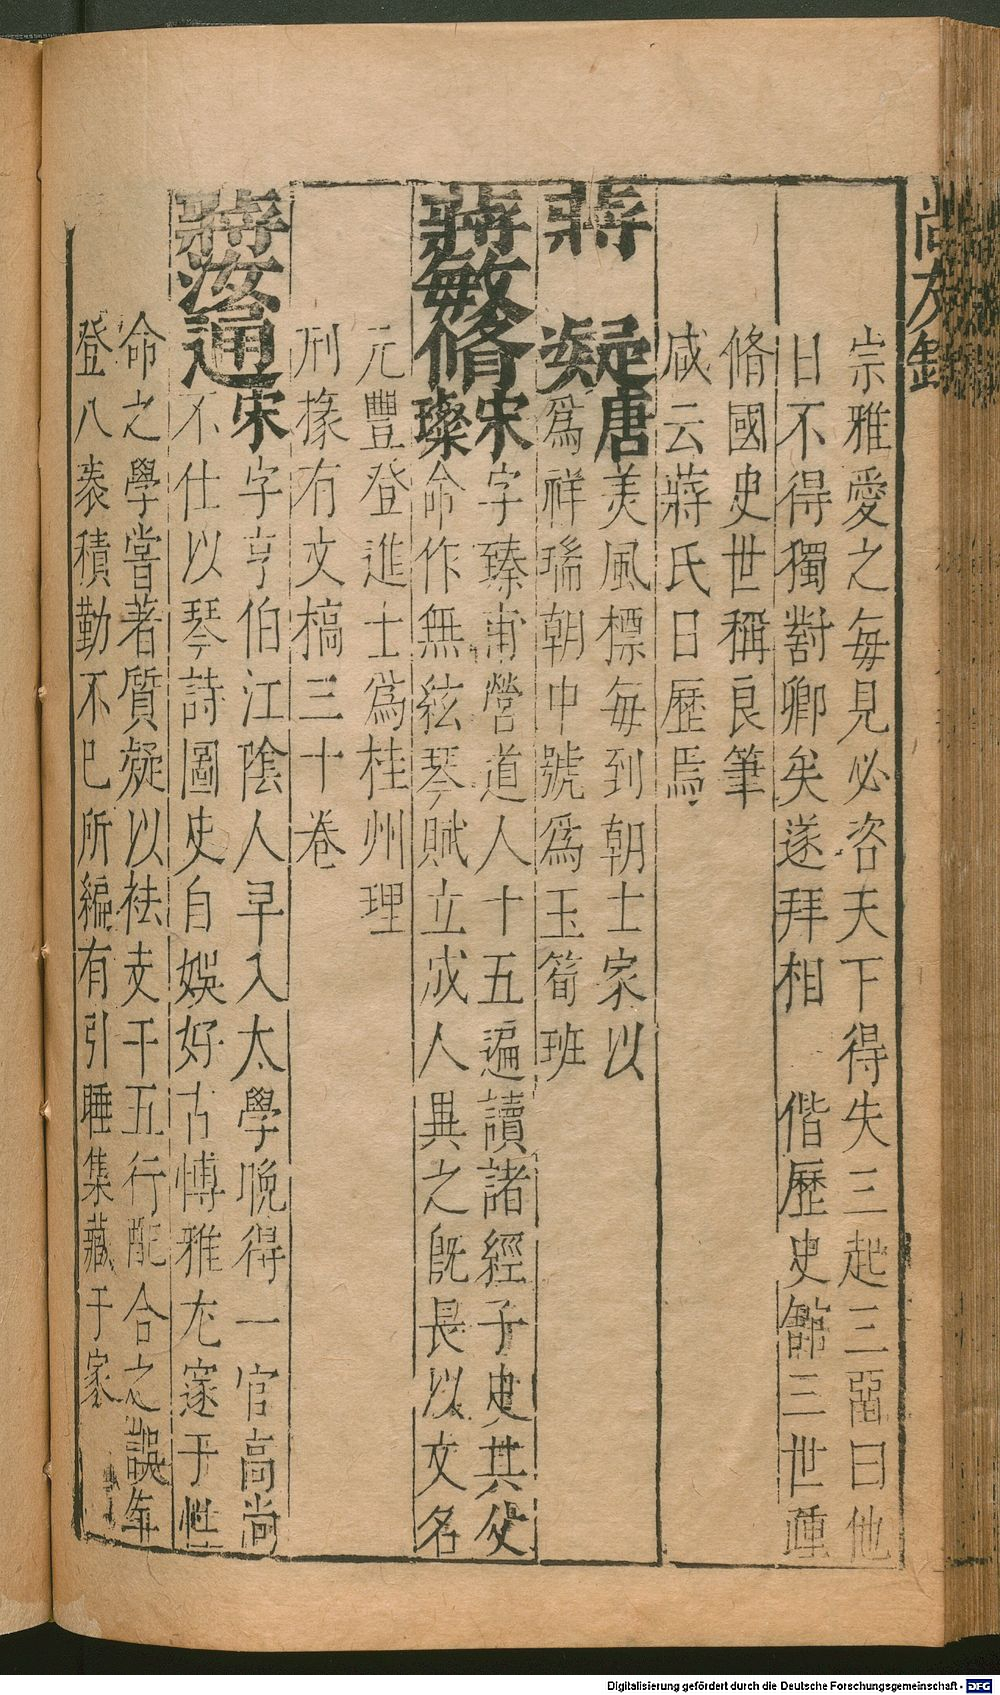 尚友錄
宗雅愛之每見必咨天下得失三起三畱曰他
日不得獨對卿矣遂拜相 偕歷史館三世踵
脩國史世稱良筆
咸云蔣氏日歷焉
蔣 凝唐美風標每到朝士家以
爲祥瑞朝中號爲玉筍班
蔣敏脩宋字臻甫營道人十五遍讀諸經子史其父
璨命作無絃琴賦立成人異之旣長以文名
元豐登進士爲桂州理
刑掾有文槁三十卷
蔣汝通宋字亨伯江隂人早入太學晚得一官高尚
不仕以琴詩圖史自娛好古博雅尢邃于性
命之學嘗著質疑以袪支干五行配合之誤年
登八袠積勤不巳所編有引睡集藏于家
Digitalisierung gefördert durch die Deutsche Forschungsgemeinschaft - DFG